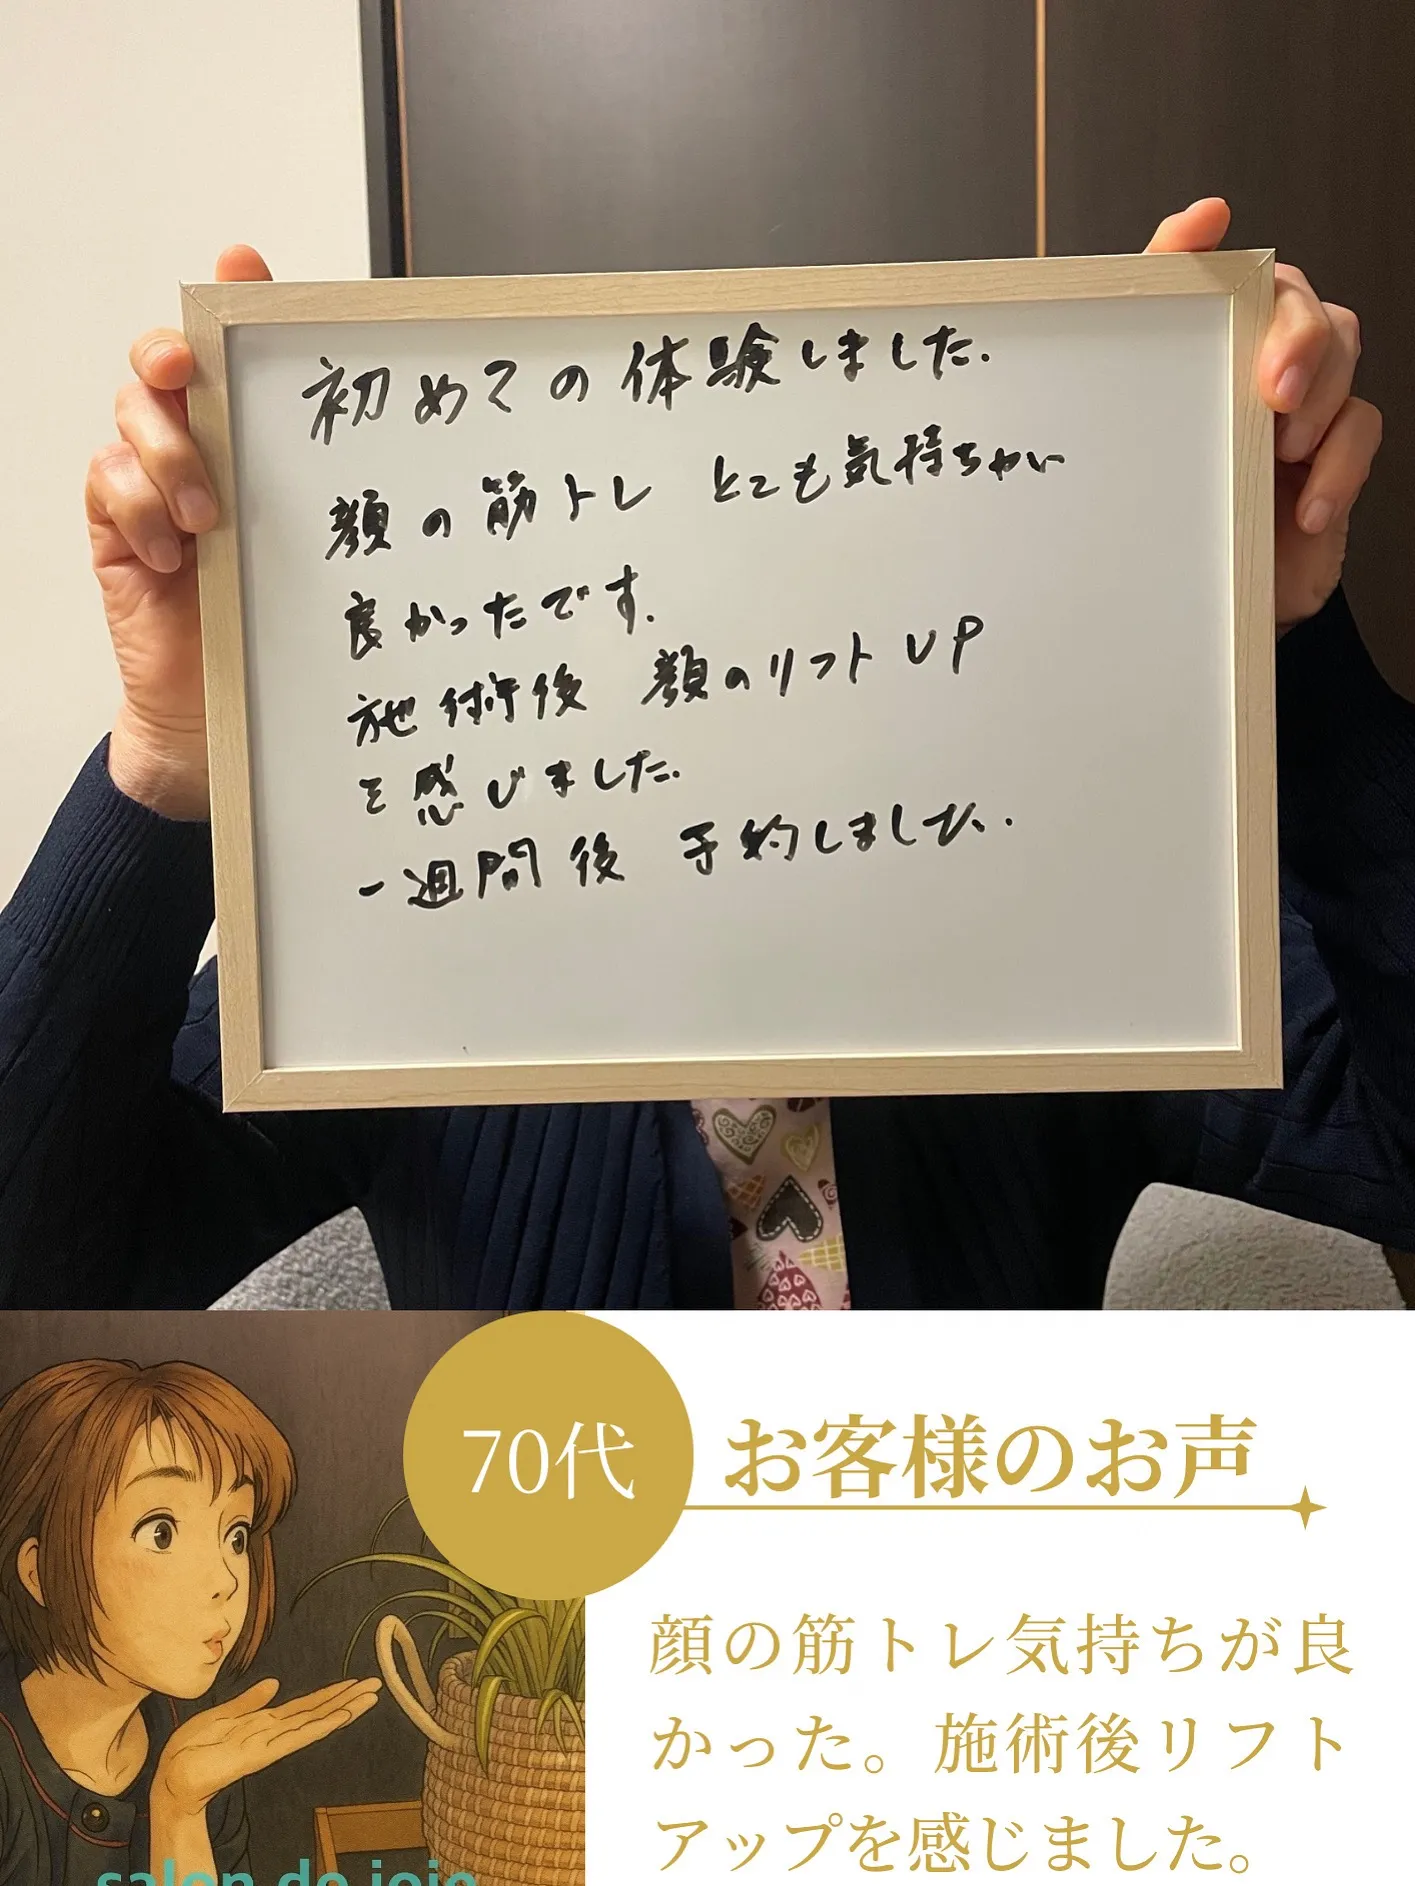 初めての体験しました.
顔の筋トレ とても気持ちがい
良かったです.
施術後 顔のリフトUP
を感じました.
一週間後 予約しました.
70代
お客様のお声
顔の筋トレ気持ちが良
かった。施術後リフト
アップを感じました。
salon de jojo